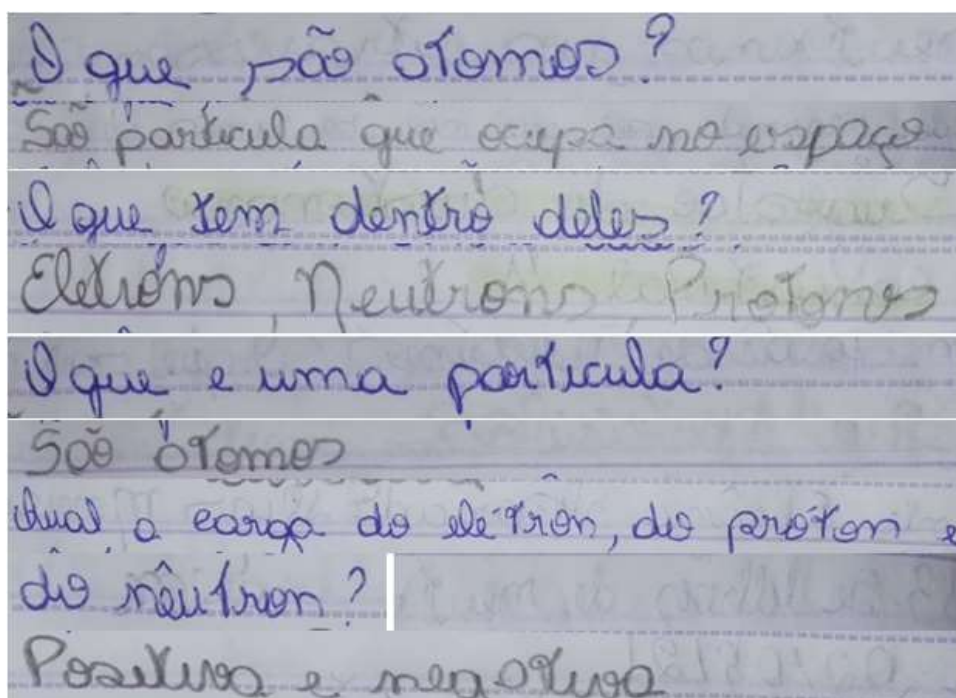 O que são átomos?
São partícula que ocupa no espaço
O que tem dentro deles?
Eletróns, Neutrons, Prótones
O que e uma partícula?
São átomos
Qual a carga do elétron, do próton e
do nêutron?
Positiva e negativa